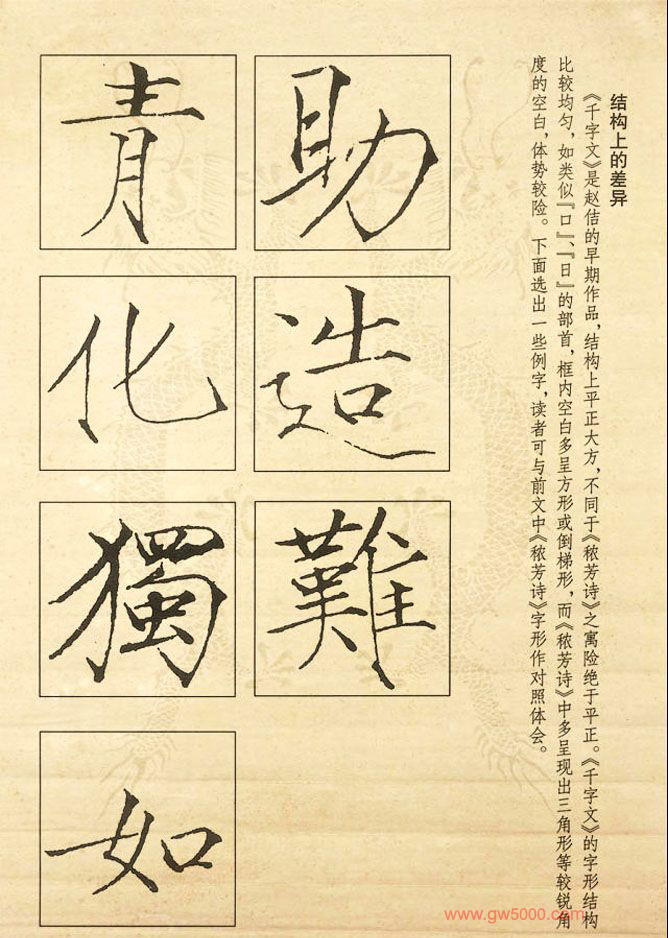 结构上的差异
《千字文》是赵佶的早期作品，结构上平正大方，不同于《秾芳诗》之寓险绝于平正。《千字文》的字形结构
比较均匀，如类似『口』、『日』的部首，框内空白多呈方形或倒梯形，而《秾芳诗》中多呈现出三角形等较锐角
度的空白，体势较险。下面选出一些例字，读者可与前文中《秾芳诗》字形作对照体会。
助
造
難
青
化
獨
如
www.gw5000.com